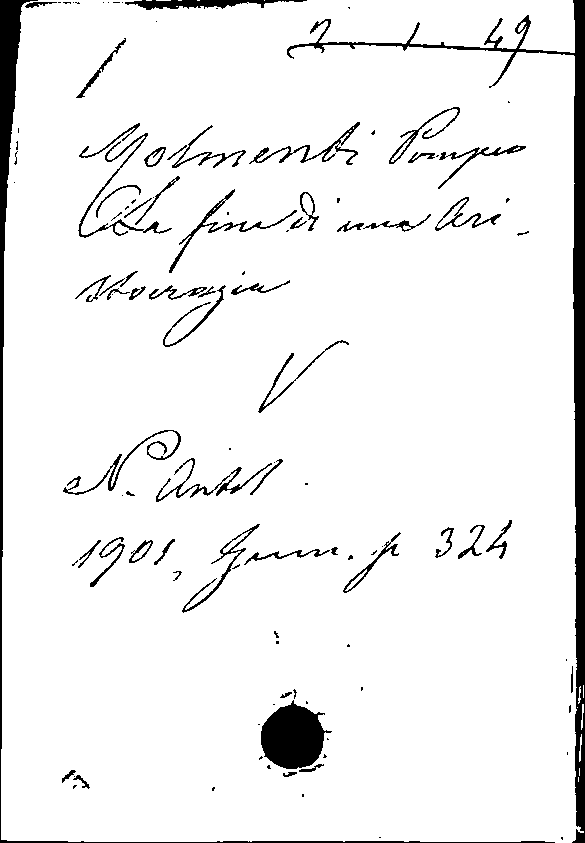 2. 1. 49
Molmenti Pompeo
La fine di una Ari-
stocrazia
V
N. Antol.
1901, Genn. p 324